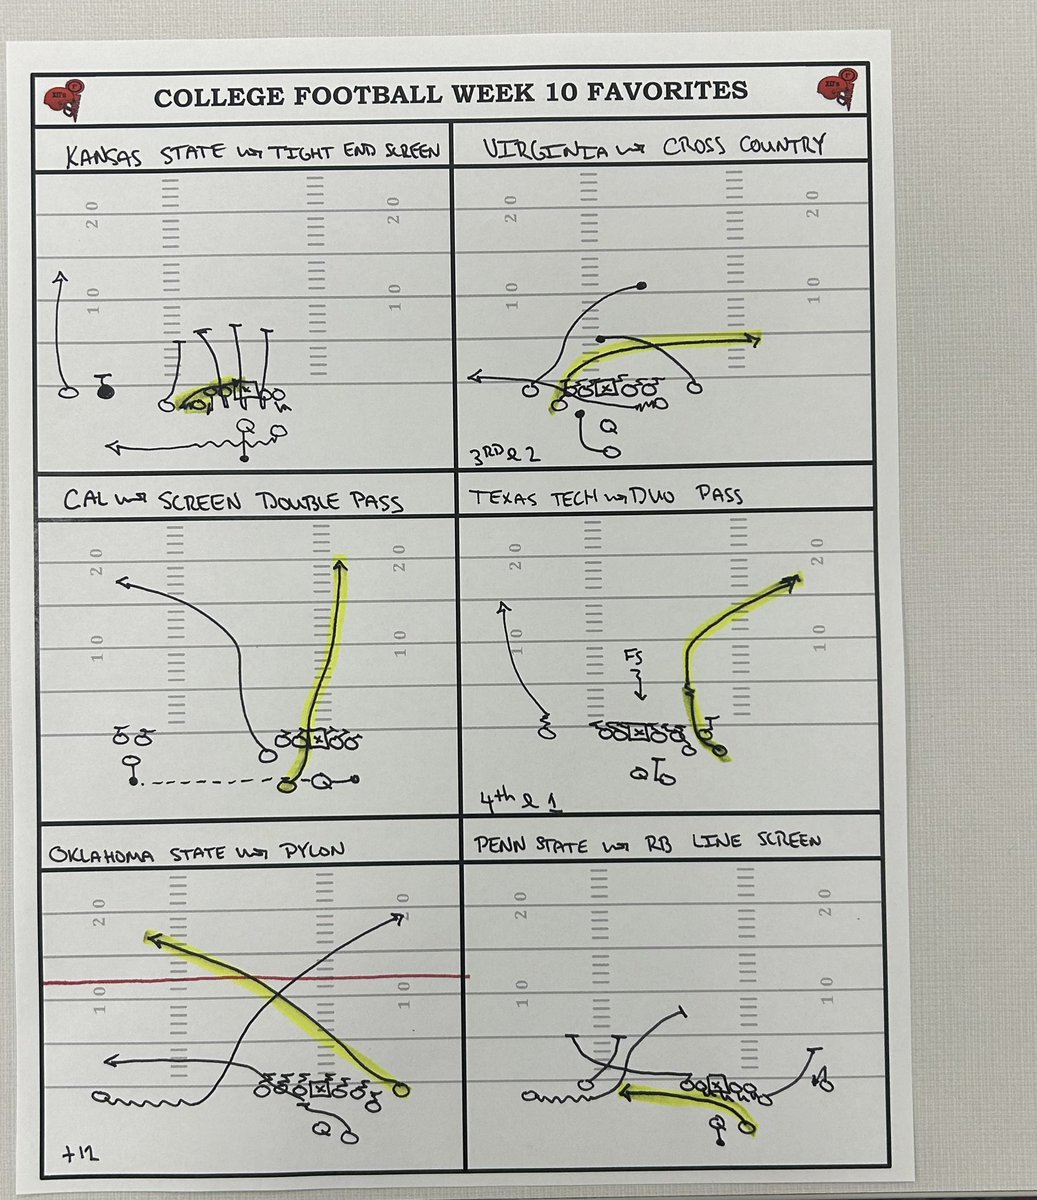 COLLEGE FOOTBALL WEEK 10 FAVORITES
KANSAS STATE w/ TIGHT END SCREEN
20 20
10 10
Q
VIRGINIA w/ CROSS COUNTRY
20 20
10 10
Q
3RD & 2
CAL w/ SCREEN DOUBLE PASS
20 20
10 10
Q
TEXAS TECH w/ DUO PASS
20 20
10 10
FS
Q
4th & 1
OKLAHOMA STATE w/ PYLON
20 20
10 10
Q
+12
PENN STATE w/ RB LINE SCREEN
20 20
10 10
Q